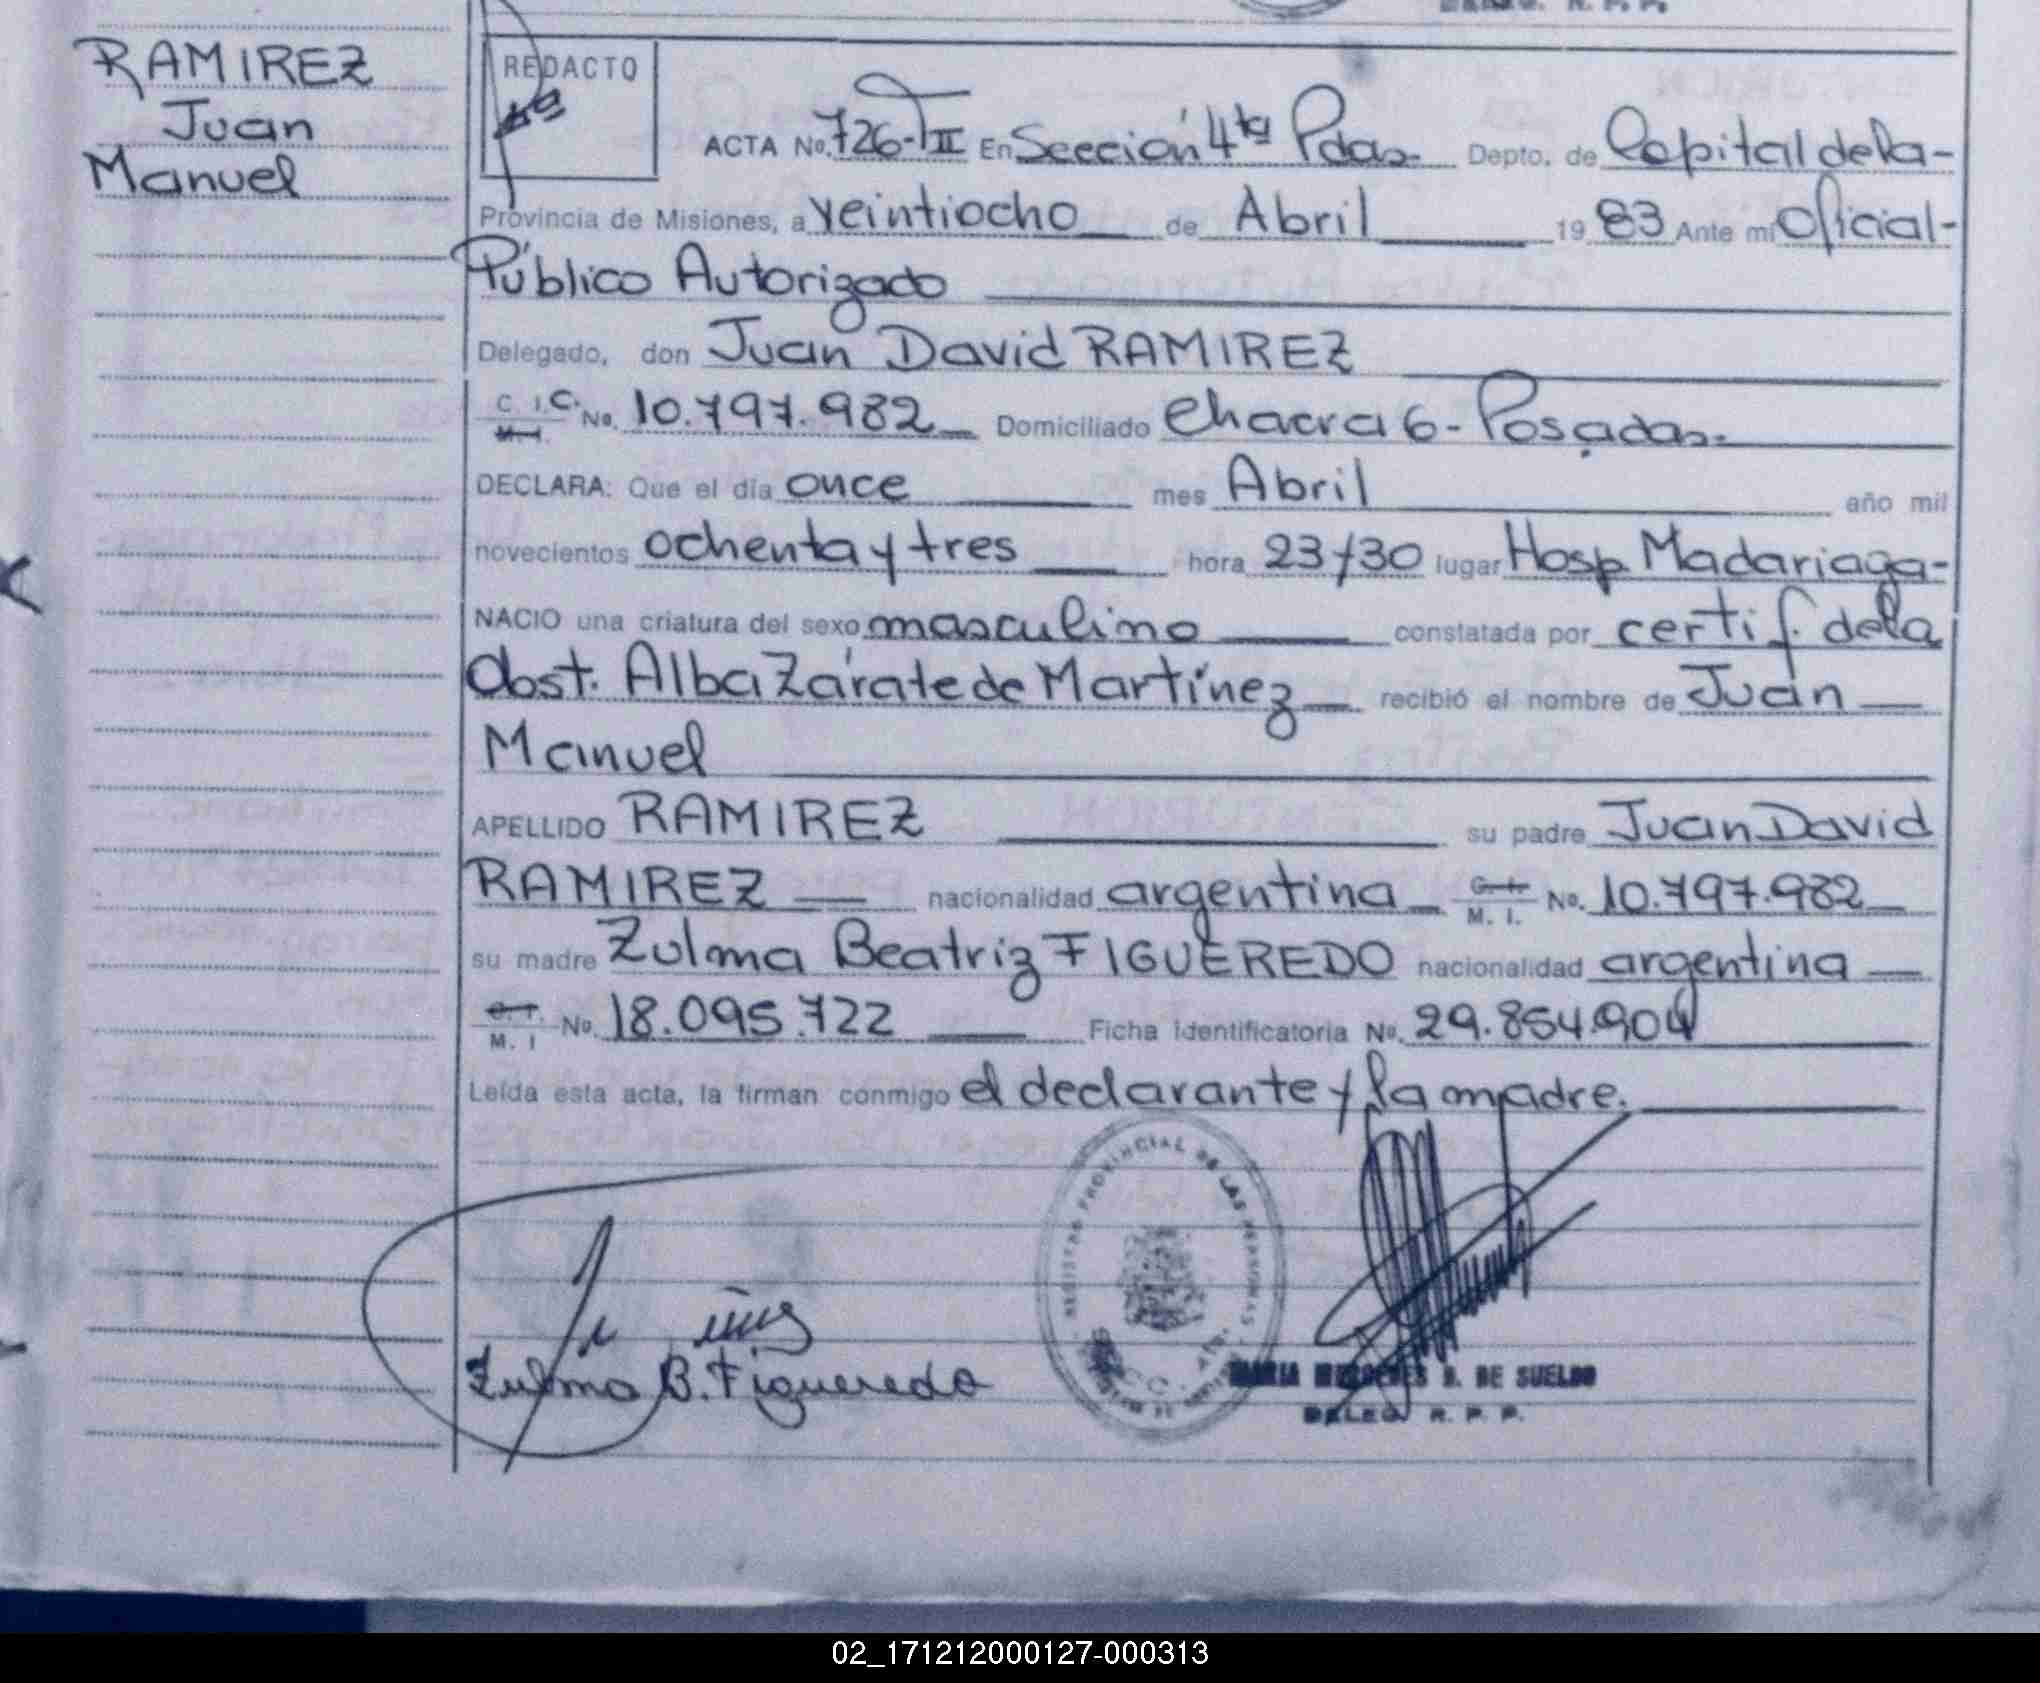 RAMIREZ
Juan
Manuel
REDACTO
ACTA No. 726-TII En Sección 4ta Pdas. Depto. de Capital de la-
Provincia de Misiones, a veintiocho de Abril 1983 Ante mí Oficial-
Público Autorizado
Delegado, don Juan David RAMIREZ
C. I. C. No. 10.797.982 Domiciliado Chacra 6- Posadas.
M. I.
DECLARA: Que el día once mes Abril año mil
novecientos ochenta y tres hora 23/30 lugar Hosp Madariaga-
NACIO una criatura del sexo masculino constatada por certif. de la
Obst. Alba Zárate de Martínez recibió el nombre de Juan
Manuel
APELLIDO RAMIREZ su padre Juan David
RAMIREZ nacionalidad argentina C. I. M. I. No. 10.797.982
su madre Zulma Beatriz FIGUEREDO nacionalidad argentina
C. I. M. I No. 18.095.722 Ficha Identificatoria No. 29.854.904
Leída esta acta, la firman conmigo el declarante y la madre.
REGISTRO PROVINCIAL DE LAS PERSONAS
Zulma B. Figueredo
MARIA MERCEDES B. DE SUELDO
DELEG. R. P. P.
02_171212000127-000313